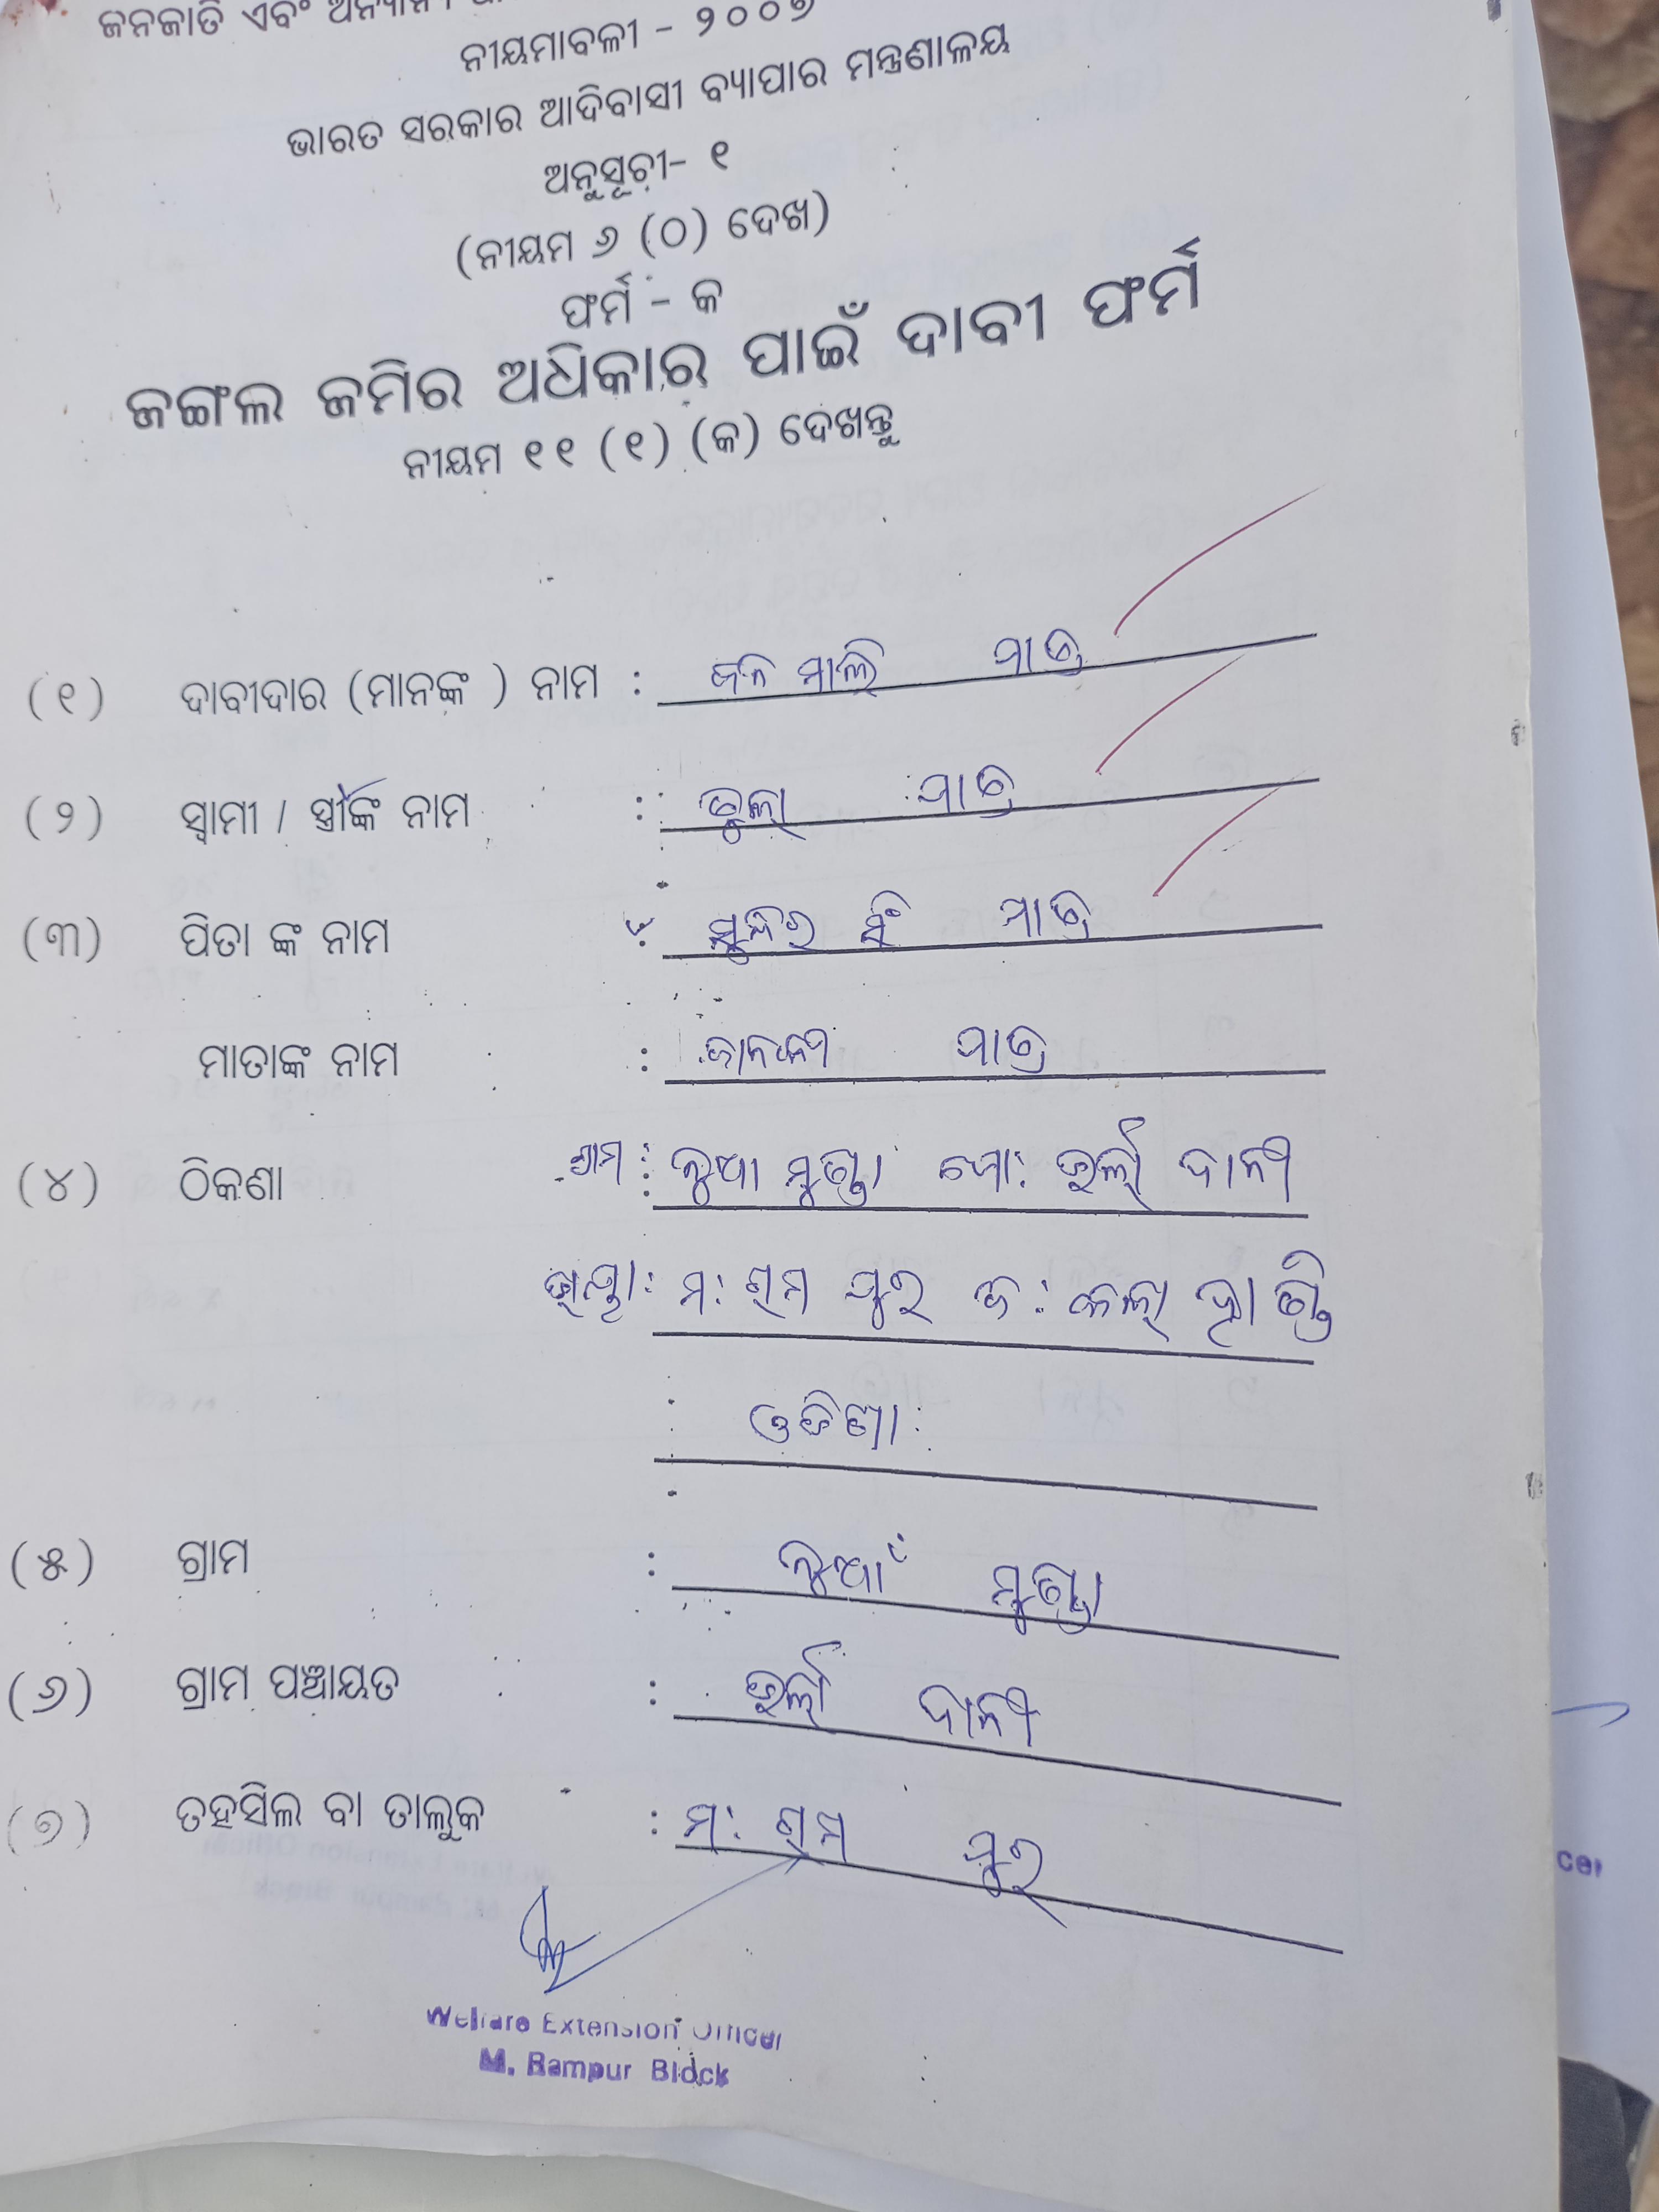 ଜନଜାତି ଏବଂ ଅନ୍ୟାନ୍ୟ
ନୀୟମାବଳୀ - ୨୦୦୭
ଭାରତ ସରକାର ଆଦିବାସୀ ବ୍ୟାପାର ମନ୍ତ୍ରଣାଳୟ
ଅନୁସୂଚୀ- ୧
(ନୀୟମ ୬ (ଠ) ଦେଖ)
ଫର୍ମ - କ
ଜଙ୍ଗଲ ଜମିର ଅଧିକାର ପାଇଁ ଦାବୀ ଫର୍ମ
ନୀୟମ ୧୧ (୧) (କ) ଦେଖନ୍ତୁ
(୧) ଦାବୀଦାର (ମାନଙ୍କ ) ନାମ : ମାଲି ପାତ୍ର
(୨) ସ୍ୱାମୀ / ସ୍ତ୍ରୀଙ୍କ ନାମ : ପାତ୍ର
(୩) ପିତା ଙ୍କ ନାମ : ସୁନ୍ଦର ସିଂ ପାତ୍ର
ମାତାଙ୍କ ନାମ : ଜାନକୀ ପାତ୍ର
(୪) ଠିକଣା ଗ୍ରାମ : ନୁଆ ମୁଣ୍ଡା ପୋ: ଦାନୀ
ମ: ରାମ ପୁର ଜି: କଳା ହାଣ୍ଡି
ଓଡିଶା
(୫) ଗ୍ରାମ : ନୁଆଁ ମୁଣ୍ଡା
(୬) ଗ୍ରାମ ପଞ୍ଚାୟତ : ଦାନୀ
(୭) ତହସିଲ ବା ତାଲୁକ : ମ: ରାମ ପୁର
Welfare Extension Officer
M. Rampur Block
cer